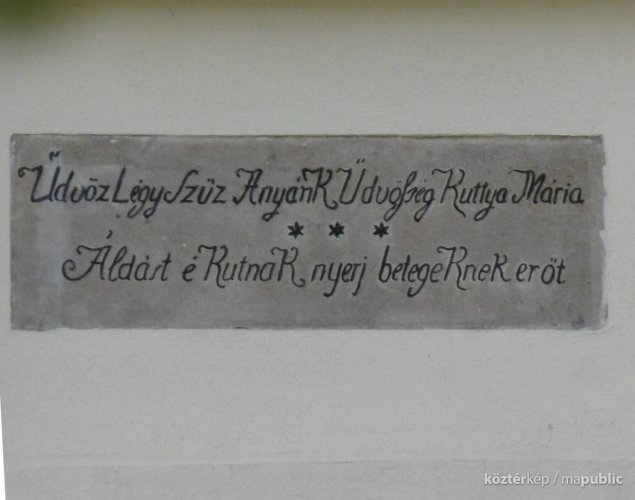 Üdvöz Légy Szüz AnyánK Üdvösség Kuttya Mária
* * *
Áldást é KutnaK nyerj betegeKneK eröt
köztérkép / mapublic